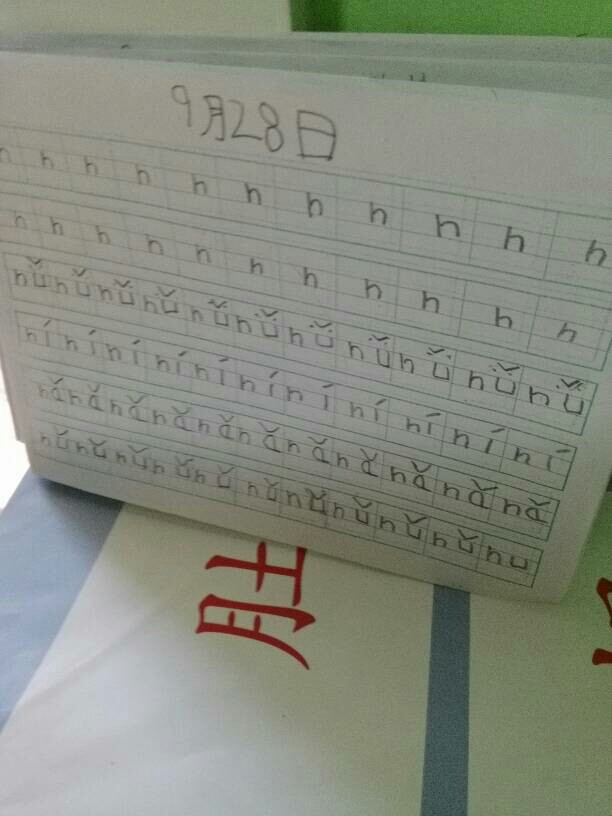 9月28日
n n n n n n n n n n n
n n n n n n n n n n n
nǚ nǚ nǚ nǚ nǚ nǚ nǚ nǚ nǚ nǚ nǚ
ní ní ní ní ní ní ní ní ní ní ní
nǎ nǎ nǎ nǎ nǎ nǎ nǎ nǎ nǎ nǎ nǎ
nǔ nǔ nǔ nǔ nǔ nǔ nǔ nǔ nǔ nǔ nu
肚